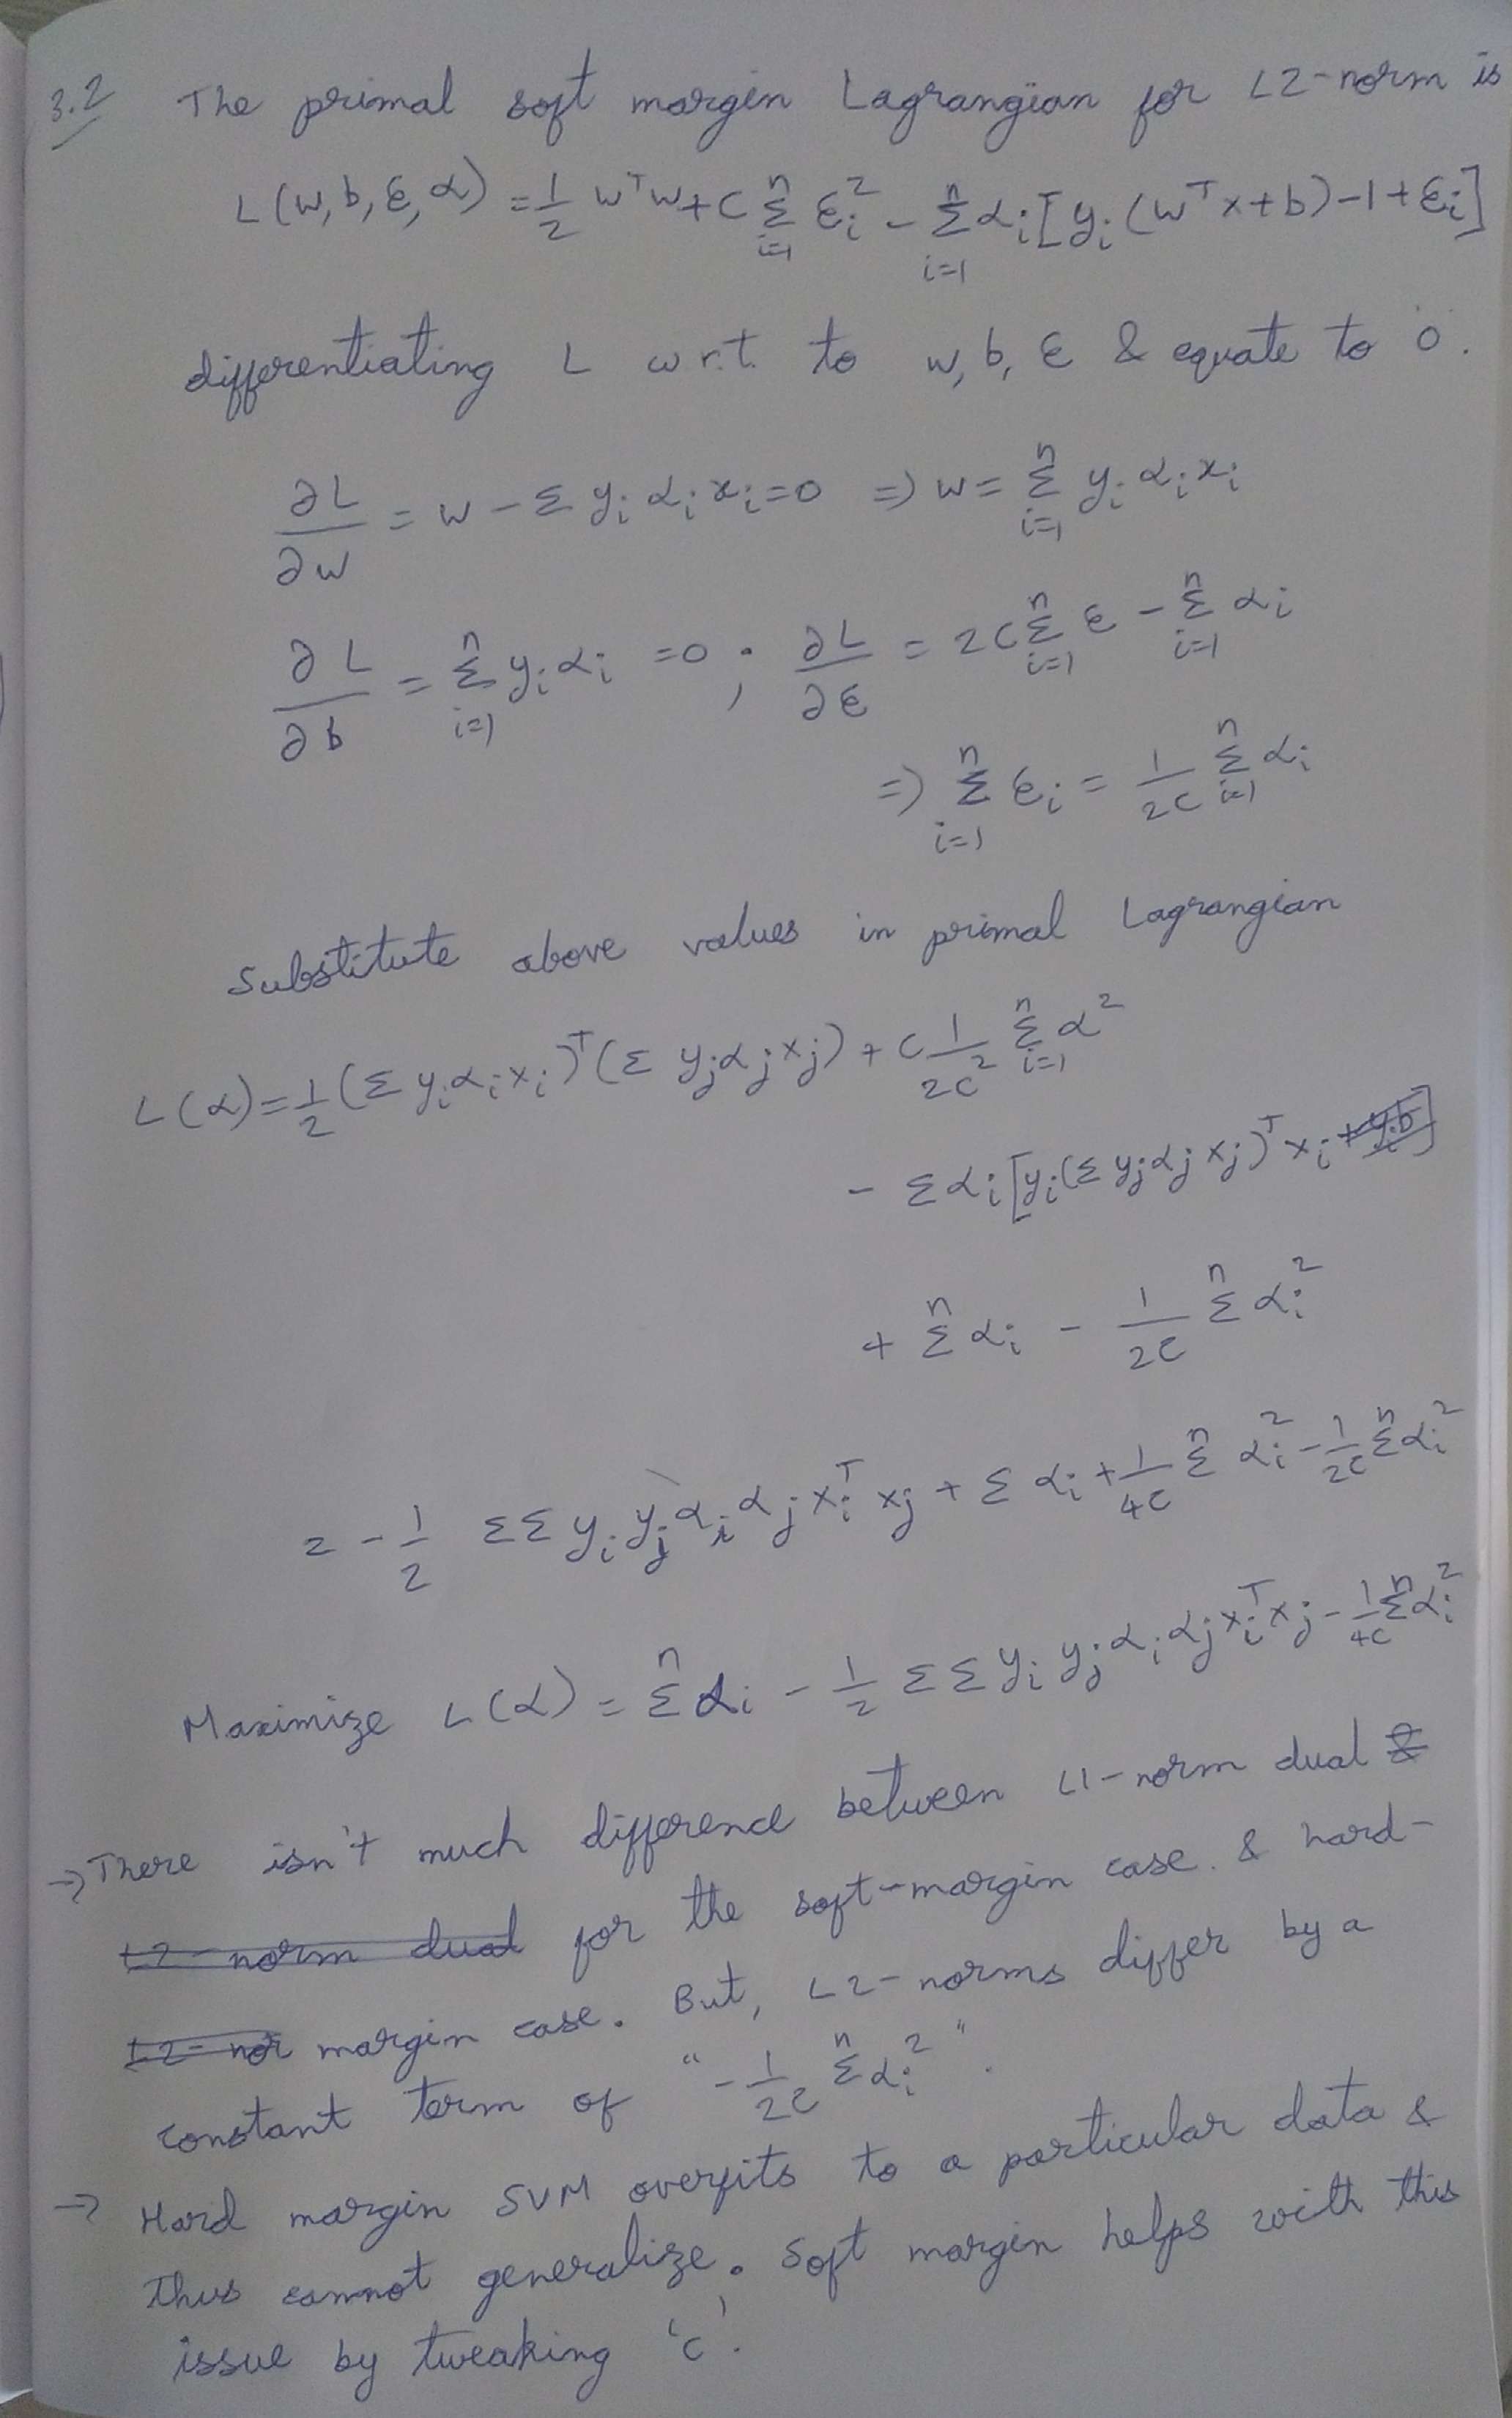 3.2 The primal soft margin Lagrangian for L2-norm is
L(w,b,ε,α) = 1/2 wᵀw + C Σ_{i=1}^{n} ε_i² - Σ_{i=1}^{n} α_i [y_i (wᵀx+b) -1 + ε_i]
differentiating L w.r.t. to w, b, ε & equate to 0.
∂L/∂w = w - Σ y_i α_i x_i = 0 => w = Σ_{i=1}^{n} y_i α_i x_i
∂L/∂b = Σ_{i=1}^{n} y_i α_i = 0 ; ∂L/∂ε = 2C Σ_{i=1}^{n} ε - Σ_{i=1}^{n} α_i
=> Σ_{i=1}^{n} ε_i = 1/2C Σ_{i=1}^{n} α_i
Substitute above values in primal Lagrangian
L(α) = 1/2 (Σ y_i α_i x_i)ᵀ (Σ y_j α_j x_j) + C 1/2C² Σ_{i=1}^{n} α²
- Σ α_i [y_i (Σ y_j α_j x_j)ᵀ x_i + y_i b]
+ Σ^{n} α_i - 1/2C Σ^{n} α_i²
= - 1/2 ΣΣ y_i y_j α_i α_j x_iᵀ x_j + Σ α_i + 1/4C Σ^{n} α_i² - 1/2C Σ^{n} α_i²
Maximize L(α) = Σ^{n} α_i - 1/2 ΣΣ y_i y_j α_i α_j x_iᵀ x_j - 1/4C Σ^{n} α_i²
→ There isn't much difference between L1-norm dual &
L2-norm dual for the soft-margin case. & hard-
L2-nor margin case. But, L2-norms differ by a
constant term of "- 1/2C Σ^{n} α_i²".
→ Hard margin SVM overfits to a particular data &
thus cannot generalize. Soft margin helps with this
issue by tweaking 'C'.